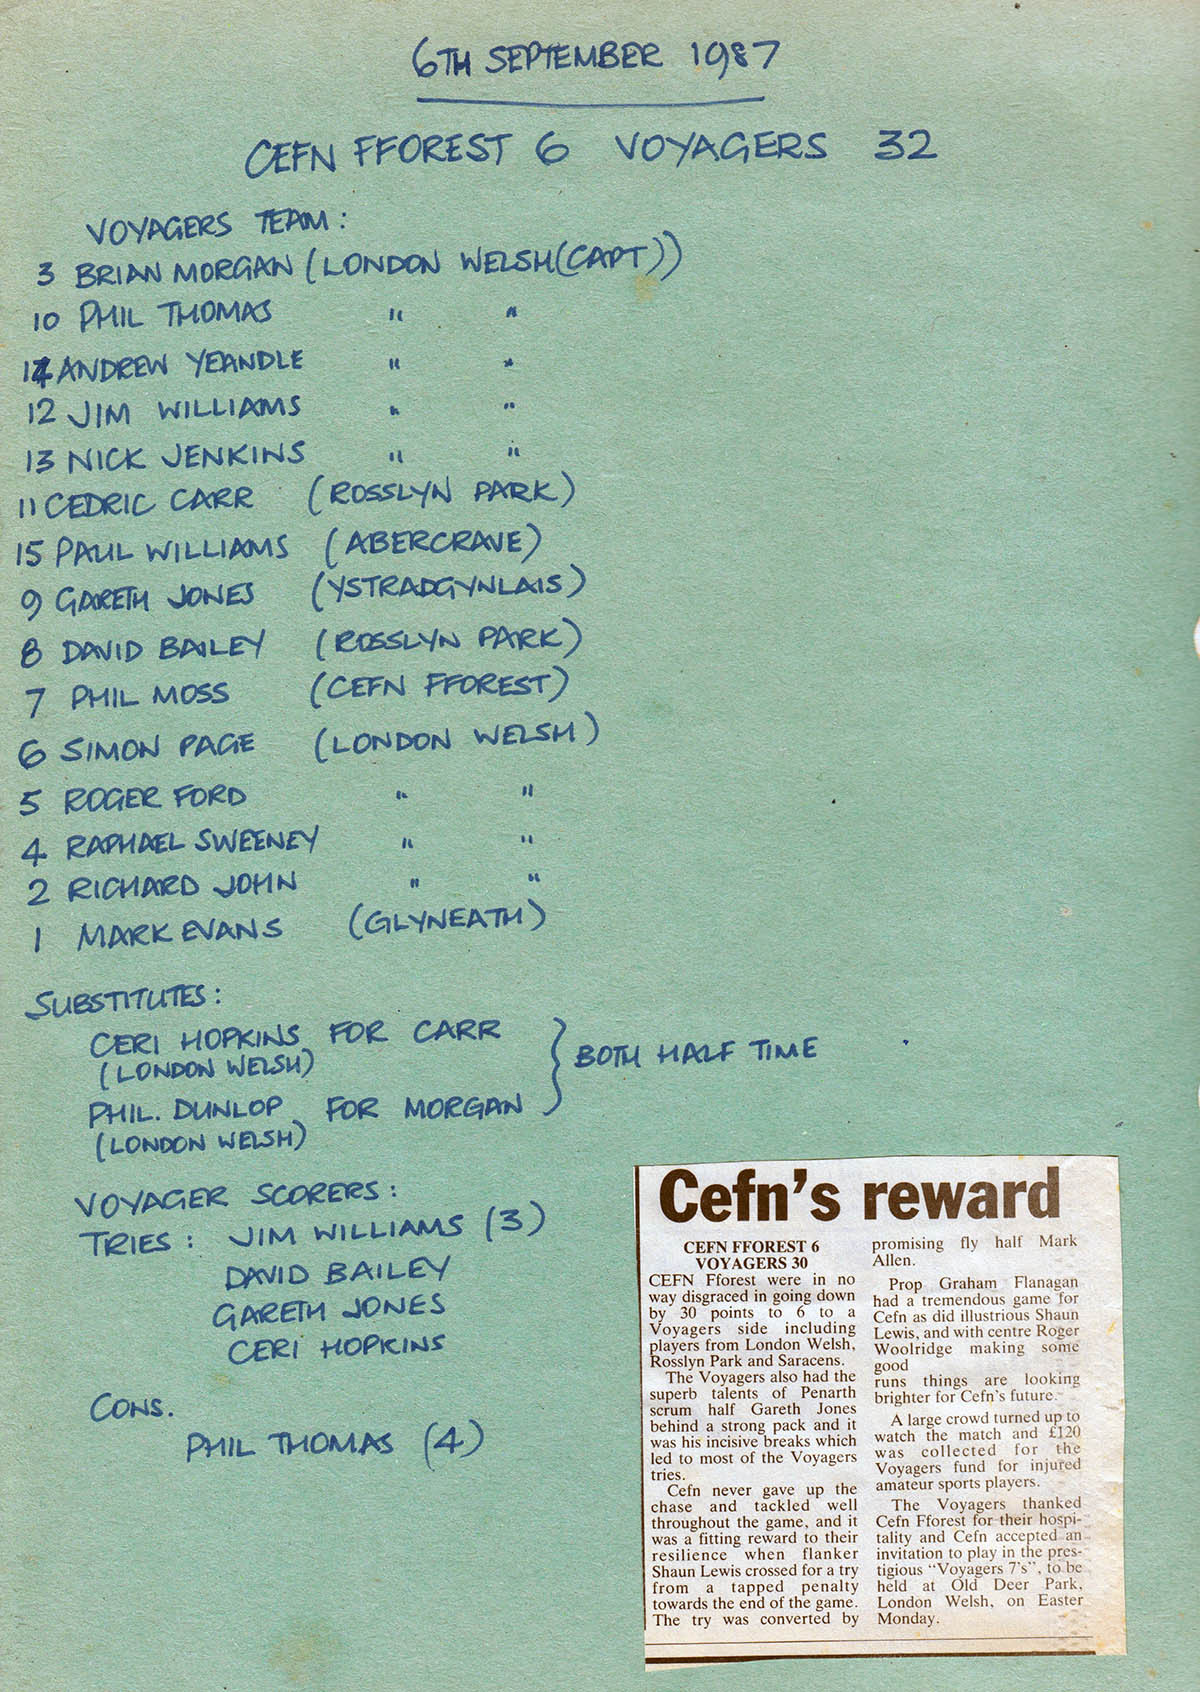 6TH SEPTEMBER 1987
CEFN FFOREST 6 VOYAGERS 32
VOYAGERS TEAM:
3 BRIAN MORGAN (LONDON WELSH (CAPT))
10 PHIL THOMAS " "
14 ANDREW YEANDLE " "
12 JIM WILLIAMS " "
13 NICK JENKINS " "
11 CEDRIC CARR (ROSSLYN PARK)
15 PAUL WILLIAMS (ABERCRAVE)
9 GARETH JONES (YSTRADGYNLAIS)
8 DAVID BAILEY (ROSSLYN PARK)
7 PHIL MOSS (CEFN FFOREST)
6 SIMON PAGE (LONDON WELSH)
5 ROGER FORD " "
4 RAPHAEL SWEENEY " "
2 RICHARD JOHN " "
1 MARK EVANS (GLYNEATH)
SUBSTITUTES:
CERI HOPKINS FOR CARR
(LONDON WELSH)
BOTH HALF TIME
PHIL. DUNLOP FOR MORGAN
(LONDON WELSH)
VOYAGER SCORERS:
TRIES: JIM WILLIAMS (3)
DAVID BAILEY
GARETH JONES
CERI HOPKINS
CONS.
PHIL THOMAS (4)
Cefn's reward
CEFN FFOREST 6
VOYAGERS 30
CEFN Fforest were in no
way disgraced in going down
by 30 points to 6 to a
Voyagers side including
players from London Welsh,
Rosslyn Park and Saracens.
The Voyagers also had the
superb talents of Penarth
scrum half Gareth Jones
behind a strong pack and it
was his incisive breaks which
led to most of the Voyagers
tries.
Cefn never gave up the
chase and tackled well
throughout the game, and it
was a fitting reward to their
resilience when flanker
Shaun Lewis crossed for a try
from a tapped penalty
towards the end of the game.
The try was converted by
promising fly half Mark
Allen.
Prop Graham Flanagan
had a tremendous game for
Cefn as did illustrious Shaun
Lewis, and with centre Roger
Woolridge making some
good
runs things are looking
brighter for Cefn's future.
A large crowd turned up to
watch the match and £120
was collected for the
Voyagers fund for injured
amateur sports players.
The Voyagers thanked
Cefn Fforest for their hospi-
tality and Cefn accepted an
invitation to play in the pres-
tigious "Voyagers 7's", to be
held at Old Deer Park,
London Welsh, on Easter
Monday.